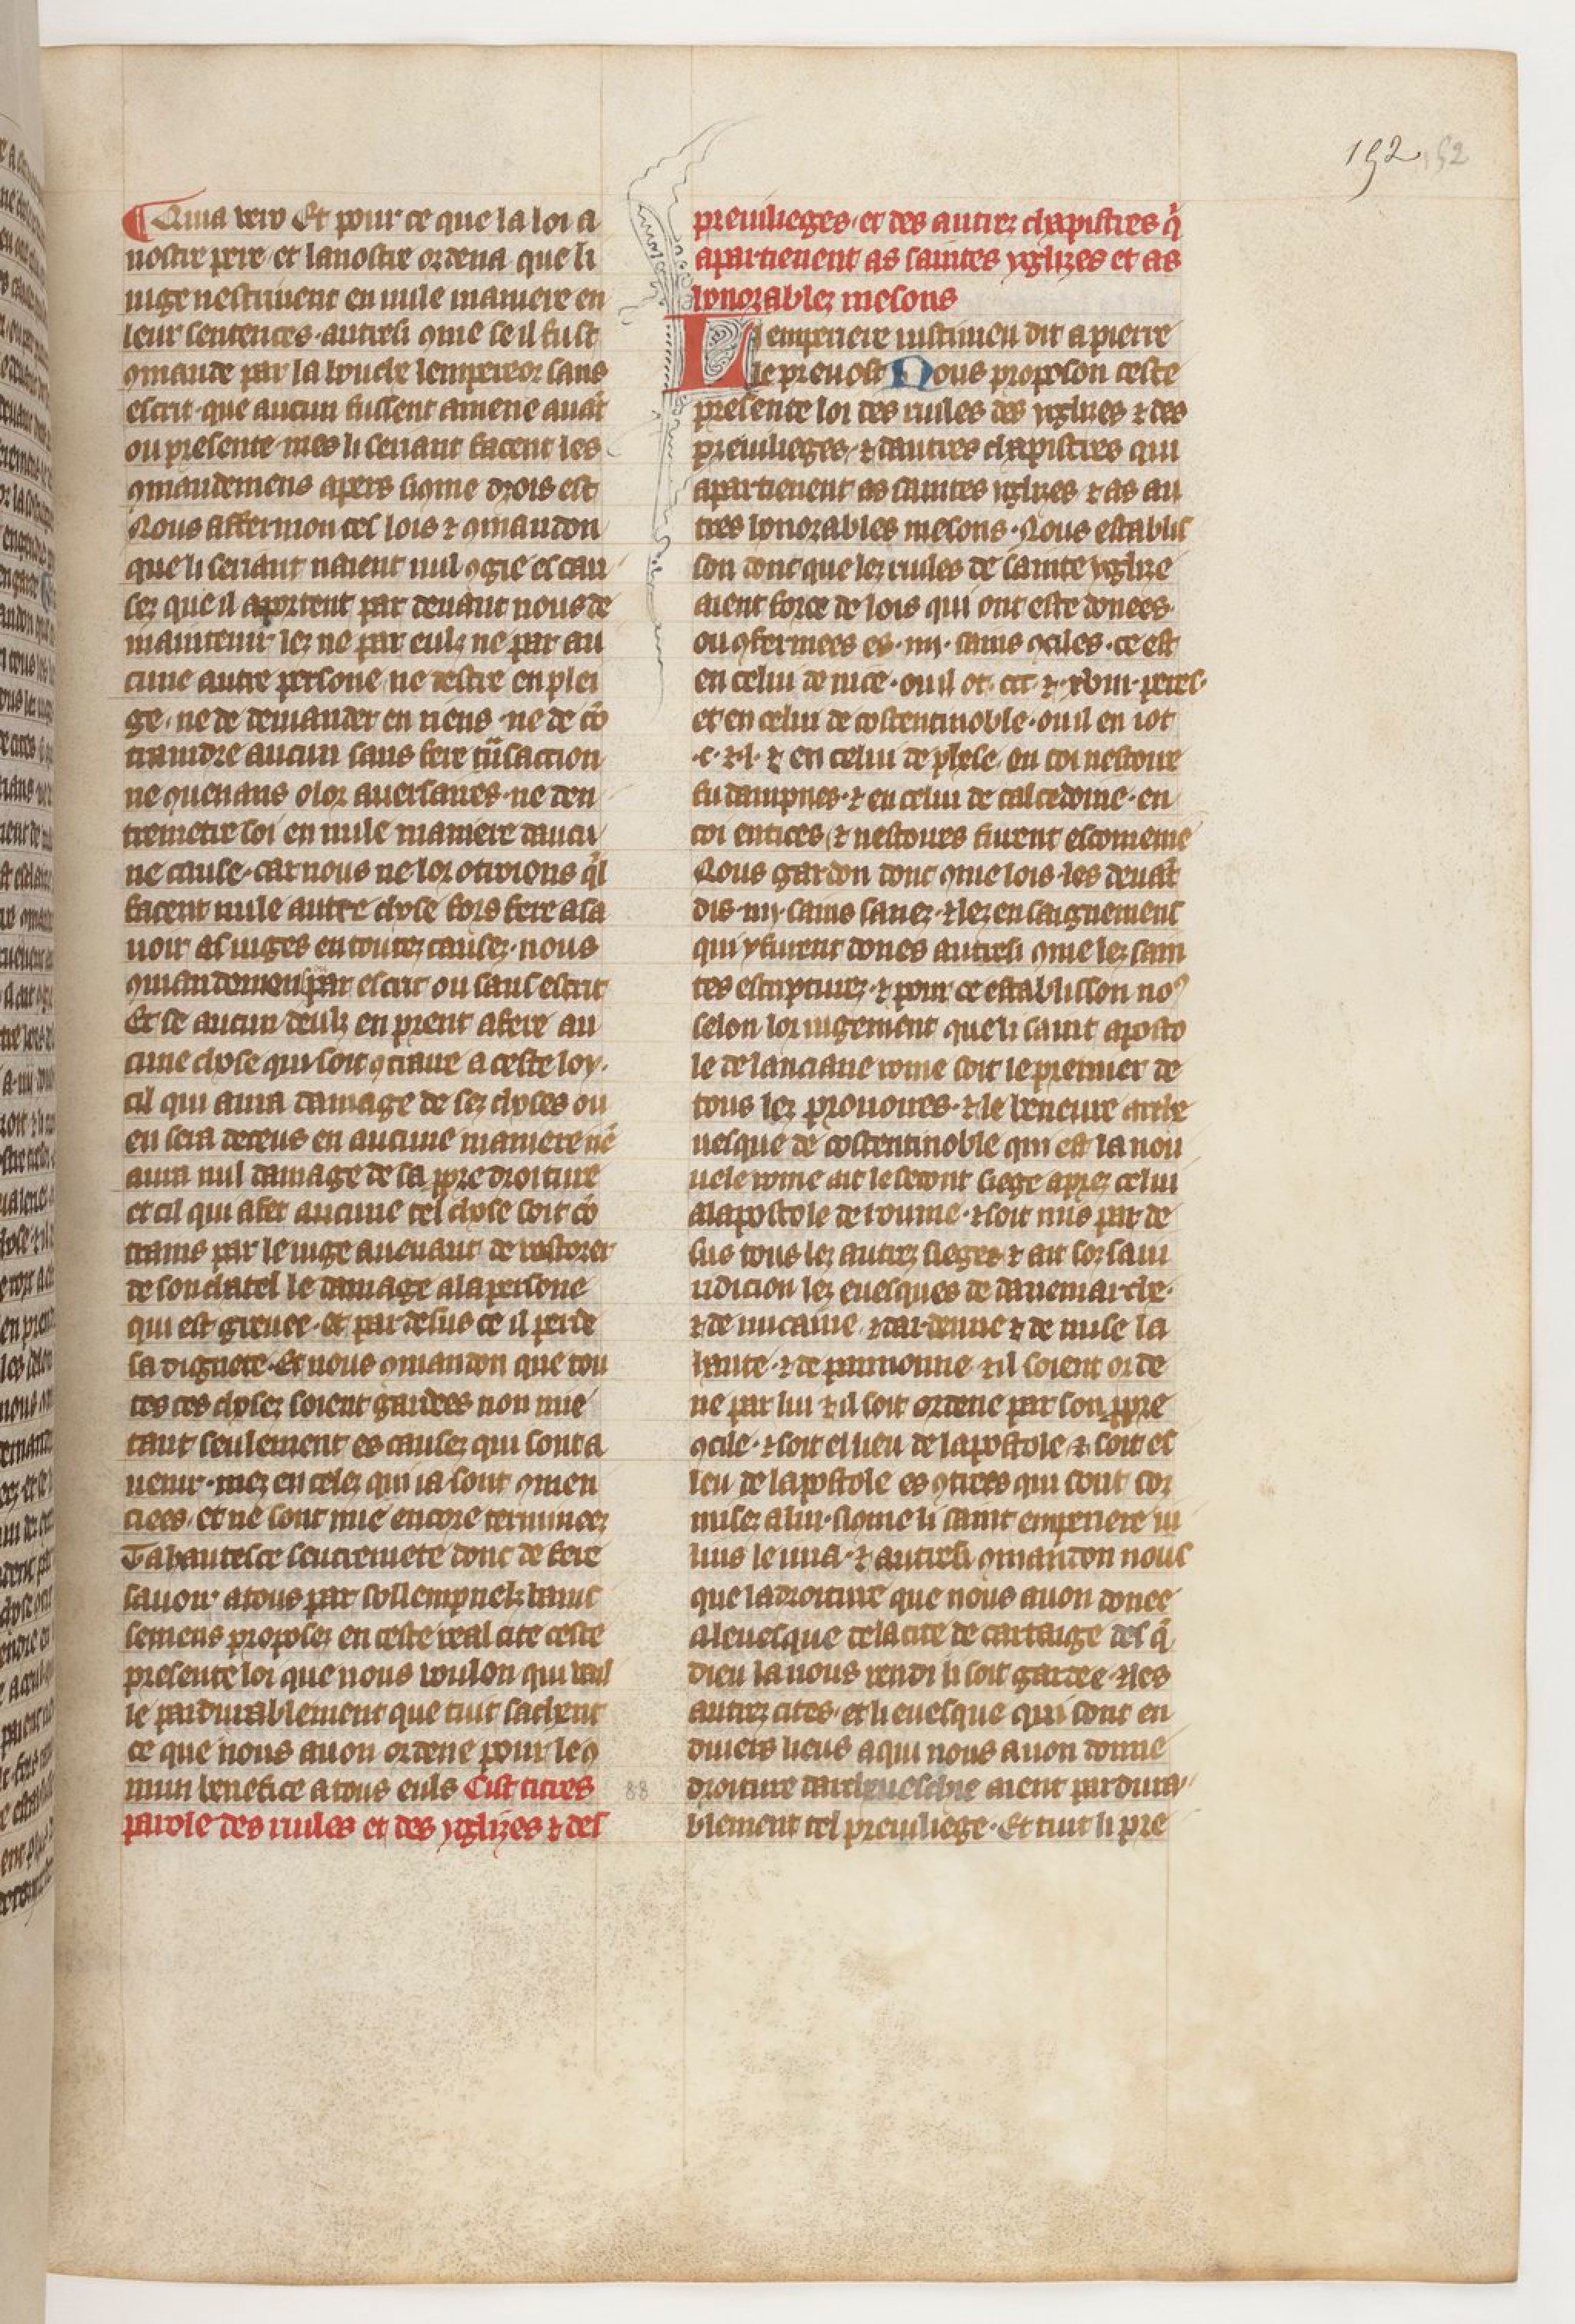 192 152
¶ Quia vero Et pour ce que la loi a
nostre pere et la nostre ordena que li
iuge nestriuent en nule maniere en
leur sentences · autresi ꝯme se il fust
ꝯmande par la bouche lempereor sans
escrit · que aucun fussent amene auāt
ou presente · mes li seriant facent les
ꝯmandemens apers si ꝯme drois est
Nous affermon ces lois ⁊ ꝯmandon
que li seriant naient nul ꝯgie es cau
sez que il aportent par deuant nous de
maintenir lez ne par eulz ne par au
cune autre persone ne destre en plei
ge · ne de demander en riens · ne de cō
traindre aucun sans fere trāsaction
ne quenans o lor auersaires · ne den
tremetre soi en nule maniere daucu
ne cause · car nous ne lor otroions q̄l
facent nule autre chose fors fere a sa
uoir as iuges en toutez causez · nous
ꝯmandemens par escrit ou sans escrit
Et se aucun deulz en prent a fere au
cune chose qui soit ꝯtraire a ceste loy ·
cil qui aura damage de sez choses ou
en sera deceus en aucune maniere nē
aura nul damage de sa ꝓpre droiture
et cil qui a fet aucune tel chose soit cō
trains par le iuge auenant de restorer
de son chatel le damage a la persone
qui est greuee · et par desus ce il perde
sa dignete · Et nous ꝯmandon que tou
tes ces chosez soient gardees non mie
tant seulement es causez qui sont a
uenir · mez en celez qui ia sont ꝯmen
ciees · et ne sont mie encore terminees
Ta hautesce seutremete donc de fere
sauoir a tous par sollempnelz banis
semens proposez en ceste real cite ceste
presente loi que nous voulon qui vail
le pardurablement que tuit sachent
ce que nous auon ordene pour le ꝯ
mun benefice a tous euls Cist titres
parole des riules et des yglizes ⁊ des
88
preuilieges · et des autrez chapistres q̄
apartienent as saintes yglizes et as
honorablez mesons
Li emperiere iustinien dit a pierre
le preuost Nous proposon ceste
presente loi des riules des yglizes ⁊ des
preuilieges · ⁊ dautres chapistres qui
apartienent as saintes yglizes ⁊ as au
tres honorables mesons · Nous establis
son donc que lez riules de sainte yglize
aient force de lois qui ont este donees
ou ꝯfermees es · iiij · sains ꝯciles · ce est
en celui de nice · ou il ot · ccc · ⁊ · xviij · peres ·
et en celui de costentinoble · ou il en i ot
· c · ⁊ · l · ⁊ en celui de phese en coi nestoire
fu dampnes · ⁊ en celui de calcedoine · en
coi entices ⁊ nestoires furent escomenie
Nous gardon donc ꝯme lois · les deuāt
dis · iiij · sains sanez · ⁊ lez ensaignemens
qui y furent dones autresi ꝯme lez sain
tes escripturez · ⁊ pour ce establisson noꝰ
selon lor iugement que li saint aposto
le de lanciane rome soit le premier de
tous lez prouoires · ⁊ le beneure arche
uesque de costentinoble qui est la nou
uele rome ait le secont siege aprez celui
a lapostole de roume · ⁊ soit mis par de
sus tous lez autrez sieges ⁊ ait sor sa iu
ridicion lez euesques de danemarche ·
⁊ de nucaine · ⁊ dardenne ⁊ de misse la
haute · ⁊ de pannonne · ⁊ il soient orde
ne par lui ⁊ il soit ordene par son ꝓpre
ꝯcile · ⁊ soit el lieu de lapostole ⁊ soit el
leu de lapostole es ꝯtrees qui sont sor
misez a lui · si ꝯme li saint emperiere iu
lius le uira · ⁊ autresi ꝯmandon nous
que la droiture que nous auon donee
a leuesque de la cite de cartaige des q̄
dieu la nous rendi li soit gardee · ⁊ les
autrez cites · et li euesque qui sont en
diuers lieus a qui nous auon donne
droiture darcheueschie aient pardura
blement tel preuiliege · Et tuit li pre